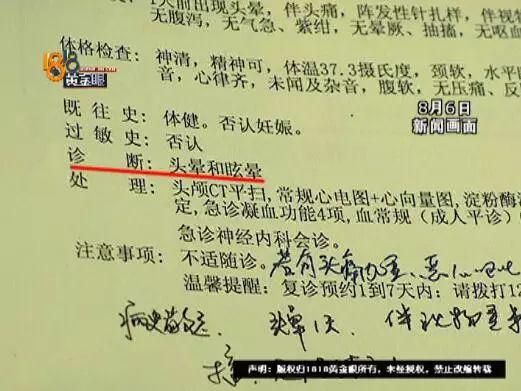 1天前出现头晕，伴头痛，阵发性针扎样，伴视物
无腹泻。无气急、紫绀，无晕厥、抽搐，无呕血
1818
黄金眼
体格检查：神清，精神可，体温37.3摄氏度，颈软，水平
音，心律齐，未闻及杂音，腹软，无压痛、反
8月6日
新闻画面
既往史：体健。否认妊娠。
过敏史：否认
诊 断：头晕和眩晕
处 理：头颅CT平扫，常规心电图+心向量图，淀粉酶
定，急诊凝血功能4项，血常规（成人平诊）
急诊神经内科会诊。
注意事项：不适随诊。若有头痛
温馨提醒：复诊预约1到7天内：请拨打12
头晕1天，伴视物
声明：版权归1818黄金眼所有，未经授权，禁止改编转载